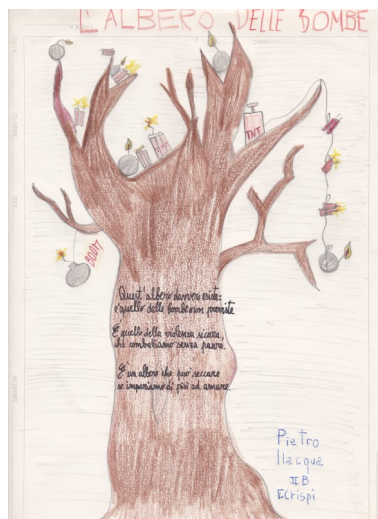 L'ALBERO DELLE BOMBE
TNT
BOOM
Quest'albero davvero esiste:
è quello delle bombe non previste
È quello della violenza sicura,
che combattiamo senza paura.
È un albero che può seccare
se impariamo di più ad amare.
Pietro
Ilacqua
II B
F. Crispi